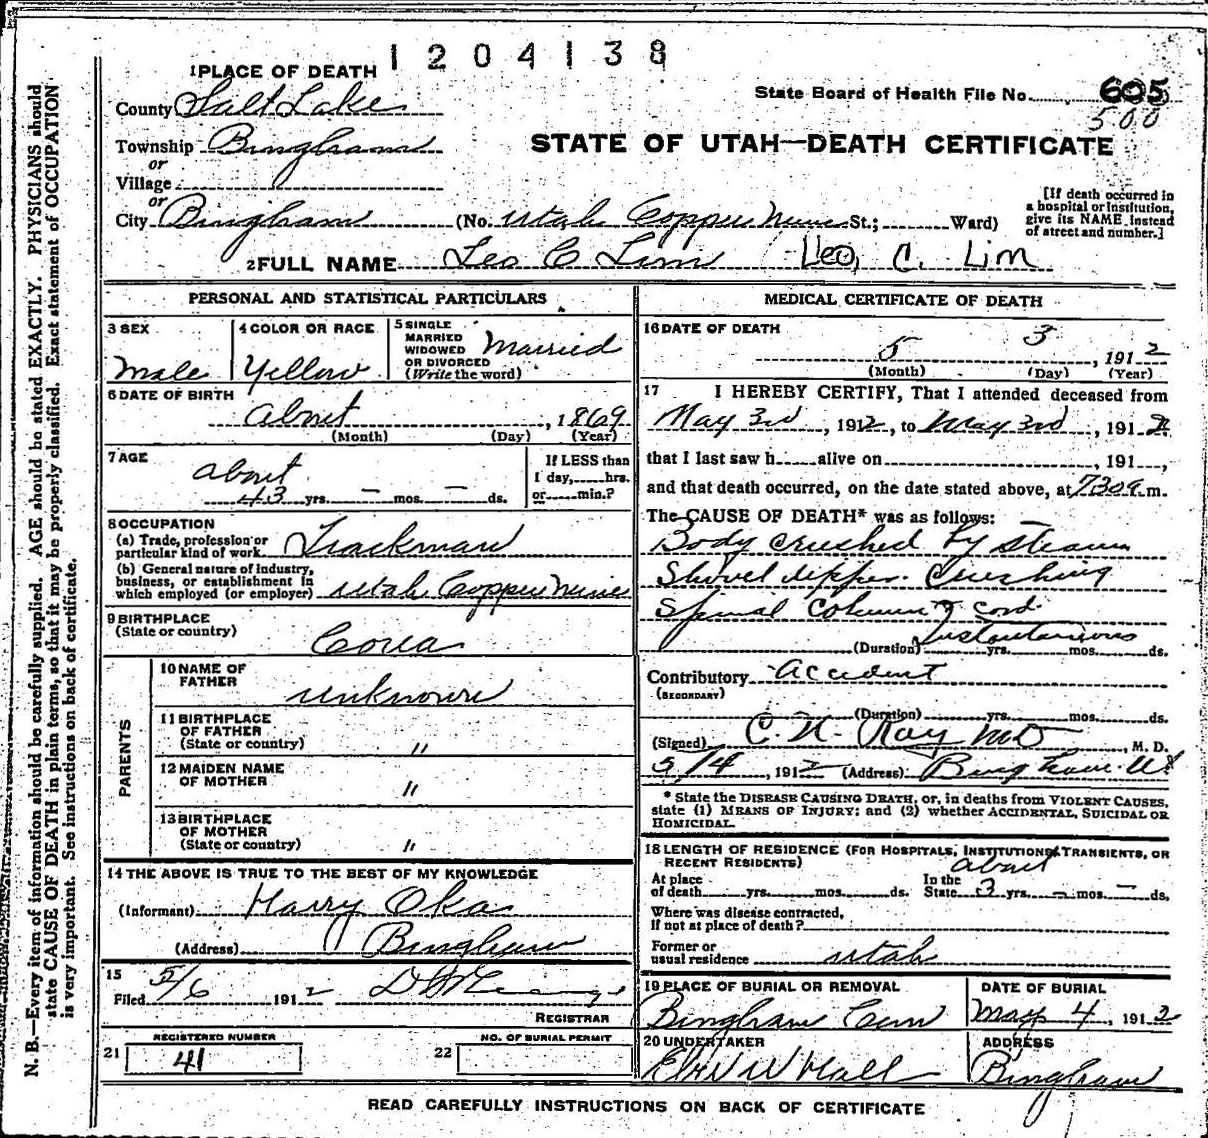 1204138
1 PLACE OF DEATH
County Salt Lake
State Board of Health File No. 605
500
Township Bingham
or
Village
or
STATE OF UTAH—DEATH CERTIFICATE
City Bingham (No. Utah Copper Mine St.; Ward)
[If death occurred in a hospital or institution, give its NAME instead of street and number.]
2 FULL NAME Leo C Lim Leo, C. Lim
PERSONAL AND STATISTICAL PARTICULARS
3 SEX
Male
4 COLOR OR RACE
Yellow
5 SINGLE
MARRIED
WIDOWED
OR DIVORCED
(Write the word)
Married
6 DATE OF BIRTH
about , 1869
(Month) (Day) (Year)
7 AGE
about
43 yrs. — mos. — ds.
If LESS than
1 day, hrs.
or min.?
8 OCCUPATION
(a) Trade, profession or
particular kind of work Trackman
(b) General nature of industry,
business, or establishment in
which employed (or employer) Utah Copper Mines
9 BIRTHPLACE
(State or country)
Corea
PARENTS
10 NAME OF
FATHER
unknown
11 BIRTHPLACE
OF FATHER
(State or country) "
12 MAIDEN NAME
OF MOTHER "
13 BIRTHPLACE
OF MOTHER
(State or country) "
14 THE ABOVE IS TRUE TO THE BEST OF MY KNOWLEDGE
(Informant) Harry Oka
(Address) Bingham
15
Filed 5/6 1912
REGISTRAR
REGISTERED NUMBER
21 41
NO. OF BURIAL PERMIT
22
MEDICAL CERTIFICATE OF DEATH
16 DATE OF DEATH
5 3 , 1912
(Month) (Day) (Year)
17 I HEREBY CERTIFY, That I attended deceased from
May 3rd , 1912, to May 3rd , 1912
that I last saw h alive on , 191 ,
and that death occurred, on the date stated above, at 730a m.
The CAUSE OF DEATH* was as follows:
Body crushed by steam
Shovel dipper. Crushing
Spinal Column & cord.
Instantanious
(Duration) yrs. mos. ds.
Contributory accident
(SECONDARY)
(Duration) yrs. mos. ds.
(Signed) C. N. Ray MD , M. D.
5/4 , 1912 (Address) Bingham Ut
* State the DISEASE CAUSING DEATH, or, in deaths from VIOLENT CAUSES,
state (1) MEANS OF INJURY; and (2) whether ACCIDENTAL, SUICIDAL OR
HOMICIDAL.
18 LENGTH OF RESIDENCE (FOR HOSPITALS, INSTITUTIONS, TRANSIENTS, OR
RECENT RESIDENTS)
about
At place
of death yrs. mos. ds.
In the
State 3 yrs. — mos. — ds.
Where was disease contracted,
if not at place of death?
Former or
usual residence Utah
19 PLACE OF BURIAL OR REMOVAL
Bingham Cem
DATE OF BURIAL
May 4 , 1912
20 UNDERTAKER
Hall
ADDRESS
Bingham
READ CAREFULLY INSTRUCTIONS ON BACK OF CERTIFICATE
N. B.—Every item of information should be carefully supplied. AGE should be stated EXACTLY. PHYSICIANS should
state CAUSE OF DEATH in plain terms, so that it may be properly classified. Exact statement of OCCUPATION
is very important. See instructions on back of certificate.